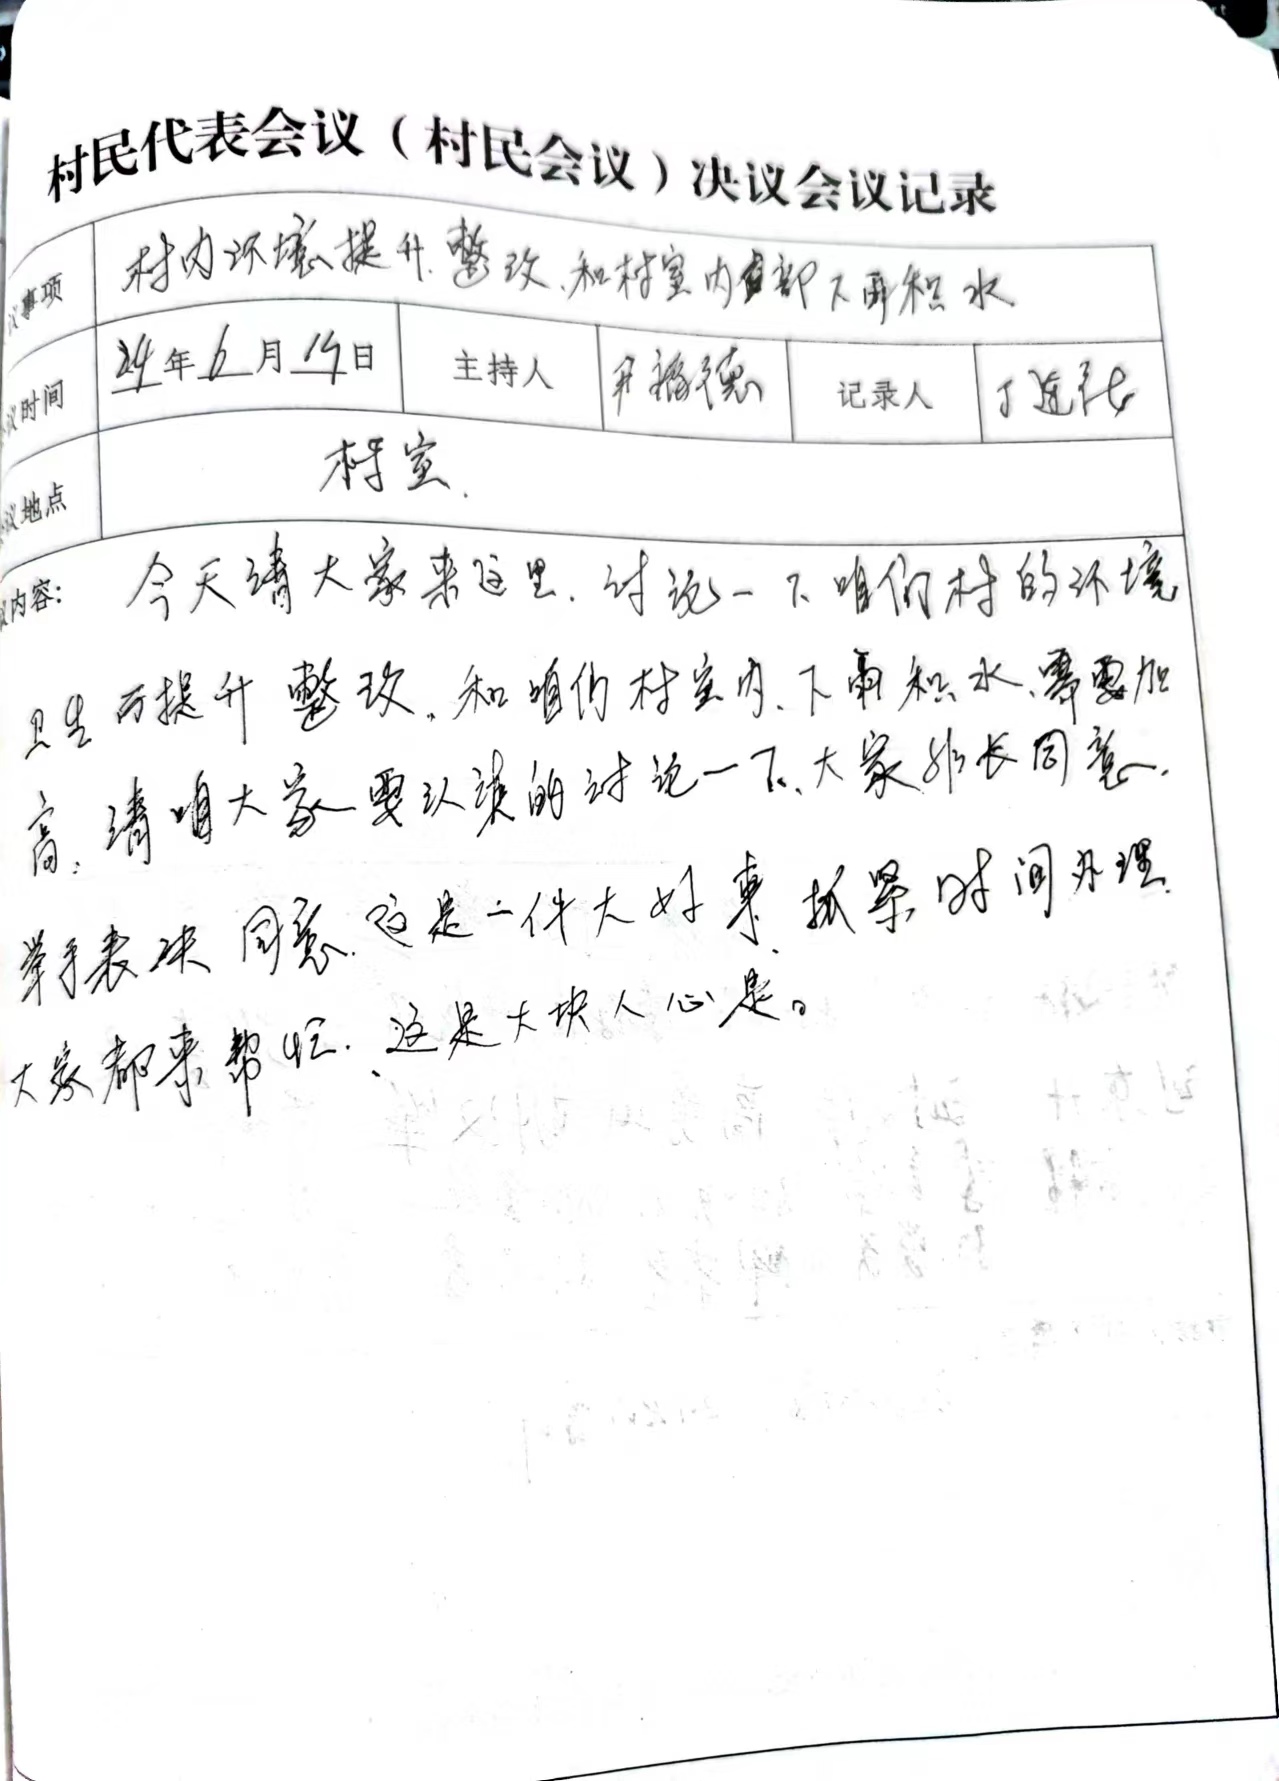 村民代表会议（村民会议）决议会议记录
议事项 村内环境提升、整改、和村室内部下雨积水
议时间 24年6月19日 主持人 记录人
议地点 村室.
议内容: 今天请大家来这里.讨论一下咱们村的环境
卫生而提升整改.和咱们村室内、下雨积水、需要加
高；请咱大家要认真的讨论一下、大家 同意.
举手表决 同意.这是一件大好事、抓紧时间办理.
大家都来帮忙.这是大块人心是。